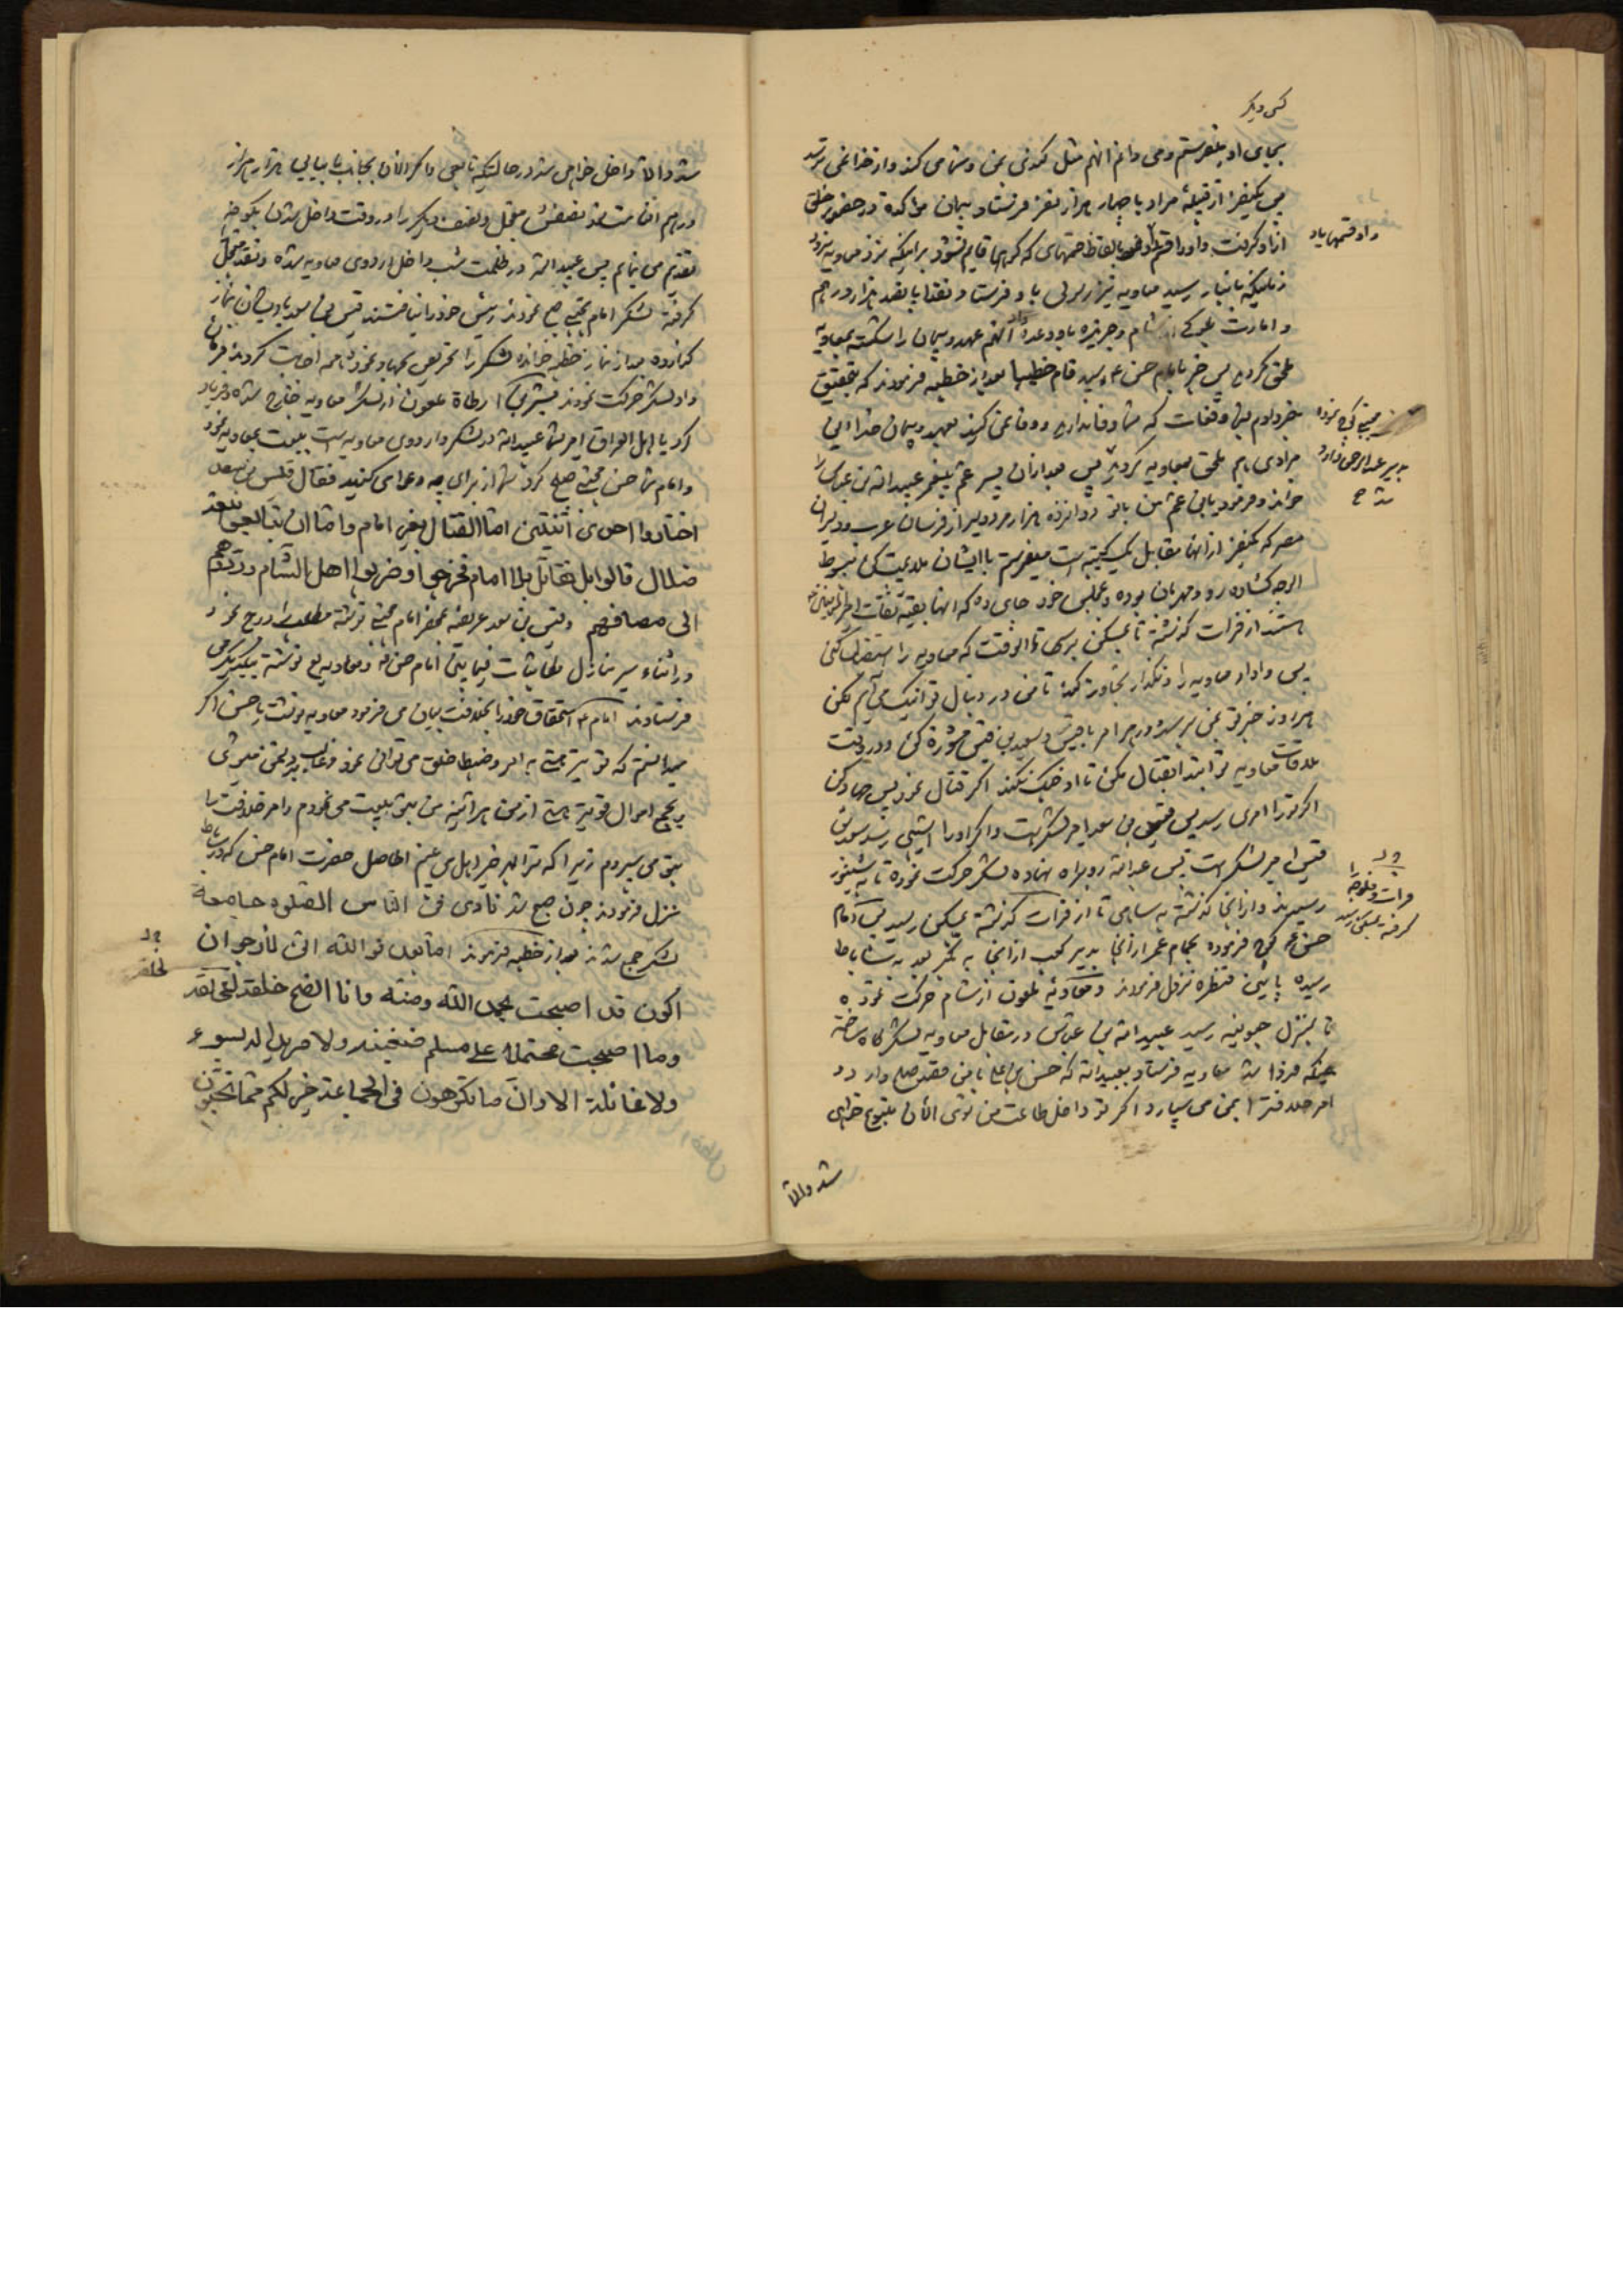 کس دیگر
بجای او بفرستم و می دانم انهم مثل کندی بمن و شما می کند و از خدا نمی ترسد
پس یکنفر از قبیلهٔ مراد با چهار هزار نفر فرستاد و پیمان موا کده در حضور خلق
ازاو گرفت و او را قسم داد بالفاظ قسمهای که کوهها قایم نشود بر اینکه نزد معاویه نرود
زمانیکه بانبار رسید معاویه نیز رسولی باو فرستاد و نقدا پانصد هزار درهم
و امارت بلوکی از شام و جزیره باو وعده داد آنهم عهد و پیمان را شکسته بمعاویه
ملحق گردید پس خبر بامام حسن ع رسید قام خطیبا بعد از خطبه فرمودند که بتحقیق
خبر دادم بشما دفعات که شما وفا ندارید و وفا نمی کنید بعهد و پیمان خدا این
مرادی هم ملحق بمعاویه گردید پس بعد ازان پسر عم پیغمبر عبید الله بن عباس را
خواند و فرمود یابن عم من با تو دوانزده هزار مرد دلیر از فرسان عرب و دلیران
مصر که یکنفر از انها مقابل یک کتیبه است میفرستم با ایشان ملایمت کن مبسوط
الوجه گشاده رو و مهربان بوده و بمجلس خود جای ده که انها بقیهٔ ثقات امیر المؤمنین
هستند از فرات گذشته تا بمسکن برسی تا انوقت که معاویه را استقبال کنی
پس وادار معاویه را و نگذار تجاوز کند تا من در دنبال تو اینک می آیم لکن
هر روز خبر تو بمن برسد و در هر امر با قیس و سعید بن قیس مشورة کن و در وقت
ملاقات معاویه تو ابتدا بقتال مکن تا او جنگ نکند اگر قتال نمود پس جهاد کن
اگر تو را امری رسد پس قیس بن سعد امیر لشکر است و اگر او را آسیبی رسد سعید بن
قیس امیر لشکر است پس عبید الله رو براه نهاده لشکر حرکت نموده تا به شینور
رسیدند و از انجا گذشته به شاهی تا از فرات گذشته بمسکن رسید پس امام
حسن ع کوچ فرموده بحمام عمر از انجا بدیر کعب از انجا به بکر بعد به ساباط
رسیده پایین قنطره نزول فرمودند و معاویهٔ ملعون از شام حرکت نموده
تا بمنزل جبونیه رسید عبید الله بن عباس در مقابل معاویه لشکرگاه ساخته
چونکه فردا شد معاویه فرستاد بعبید الله که حسن بن علی با من قصد صلح دارد و
امر خلافترا بمن می سپارد اگر تو داخل طاعت من بشوی الآن متبوع خواهی
شد والا
داد قسمها یاد
بدیر عبد الرحمن وارد
شد ح
فرات و فلوجه را
گرفته بمسکن رسید
شد والا داخل خواهی شد در حالتیکه تابعی و اگر الآن بجانب ما بیایی هزار هزار
درهم انعامت شود نصفش معجل و نصف دیگر را در وقت داخل شدن بکوفه
تقدیم می نمایم پس عبید الله در ظلمت شب داخل اردوی معاویه شده و نقد معجل
گرفته لشکر امام مجتبی صبح نمودند رئیس خود را نیافتند قیس بن سعد با ایشان نماز
گذارده بعد از نماز خطبه خوانده لشکر را تحریص بجهاد نمود همه اجابت کردند فرمان
داد لشکر حرکت نمودند بسر بن ارطاة ملعون از لشکر معاویه خارج شده فریاد
کرد یا اهل العراق امیر شما عبید الله در لشکر و اردوی معاویه است بیعت بمعاویه نمود
و امام شما حسن مجتبی صلح کرد شما از برای چه دعوا می کنید فقال قیس بن سعد
اختاروا احدی اثنتین اما القتال بغیر امام و اما ان تبایعوا بیعة
ضلال قالوا بل نقاتل بلا امام فخرجوا و ضربوا اهل الشام وردوهم
الی مصافهم و قیس بن سعد عریضه بحضور امام مجتبی نوشته مطلب را درج نمود
در اثناء سیر منازل مکاتبات فیما بین امام حسن ع و معاویه لع نوشته بیکدیگر می
فرستادند امام ع استحقاق خود را بخلافت بیان می فرمود معاویه نوشت یا حسن اگر
میدانستم که تو بهتر هستی به امر و ضبط خلق می توانی نمود و غالب بر دشمن میشوی
بر جمع اموال قویتر هستی از من هر آئینه من بتو بیعت می نمودم و امر خلافت را
بتو می سپردم زیرا که ترا بهر خیر اهل می بینم الحاصل حضرت امام حسن که در ساباط
منزل فرمودند چون صبح شد نادی فی الناس الصلوة جامعة
لشکر جمع شدند بعد از خطبه فرمودند اما بعد فو الله انی لأرجو ان
اکون قد اصبحت بحمد الله و منه وانا انصح خلقه لخلقه
وما اصبحت محتملا علی مسلم ضغینة ولا مریدا له بسوء
ولا غائلة الا وان ما تکرهون فی الجماعة خیر لکم مما تحبون
لخلقه